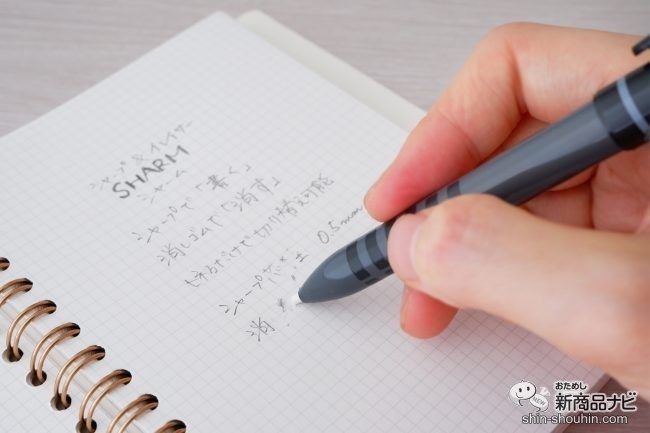 シャープ&イレイサー
SHARM
シャーム
シャープで「書く」
消しゴムで「消す」
ひねるだけで切り替え可能
シャープ 0.5mm
消
おためし
新商品ナビ
NEW
shin-shouhin.com